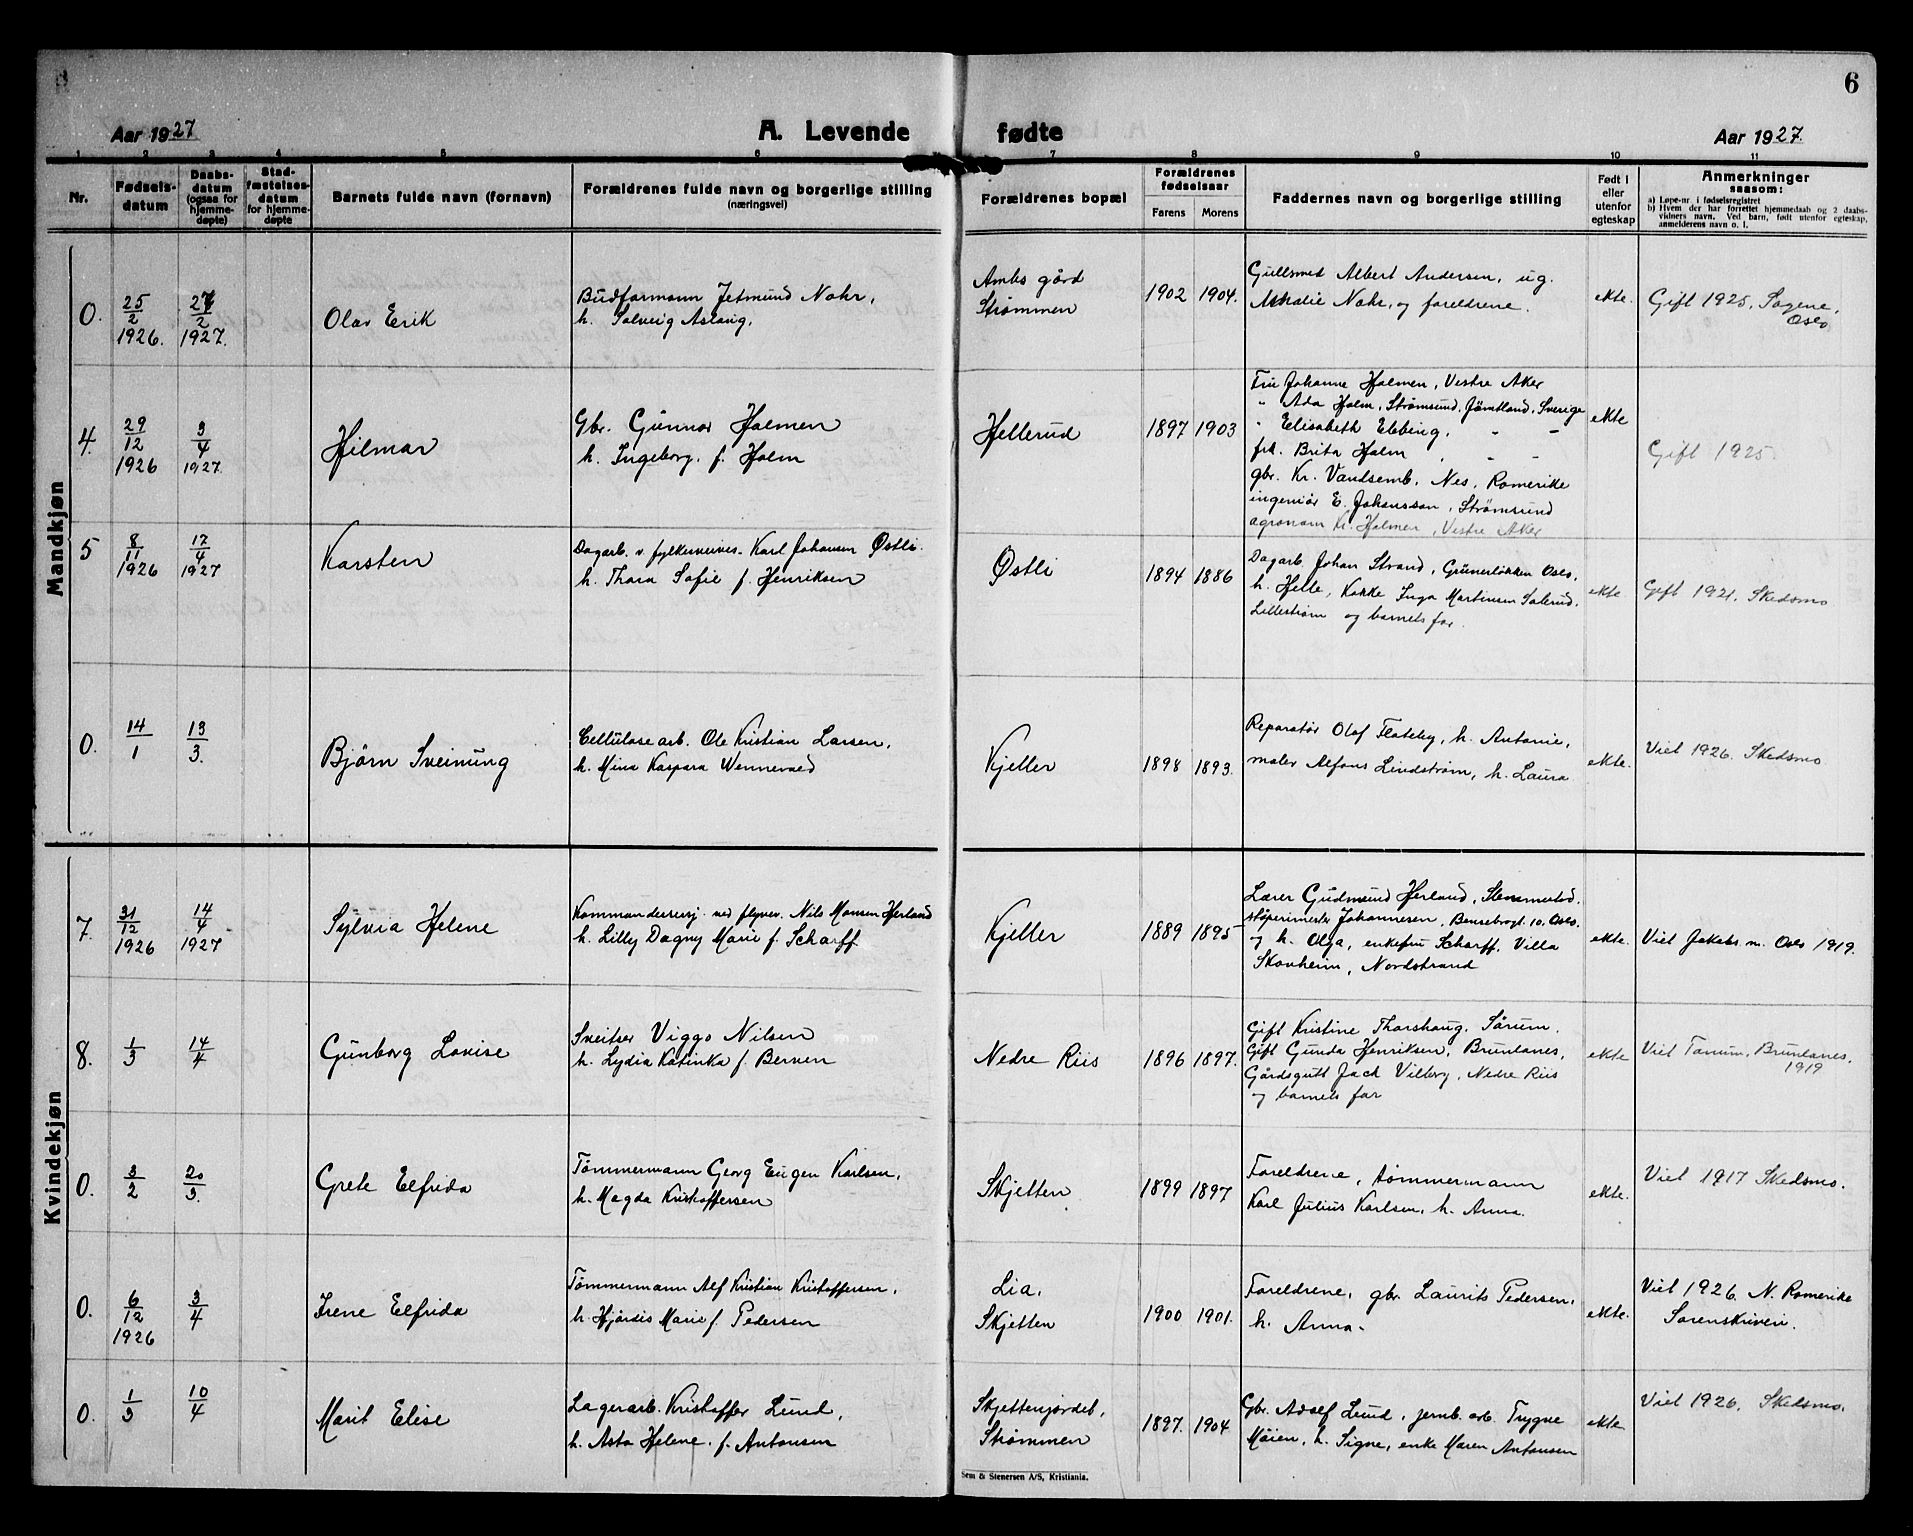 6
Aar 1927
A. Levende fødte
Aar 1927.
1 2 3 4 5 6 7 8 9 10 11
Nr.
Fødselsdatum
Daabsdatum (ogsaa for hjemmedøpte)
Stadfæstelsesdatum for hjemmedøpte
Barnets fulde navn (fornavn)
Forældrenes fulde navn og borgerlige stilling
(næringsvei)
Forældrenes bopæl
Forældrenes fødselsaar
Farens Morens
Faddernes navn og borgerlige stilling
Født i eller utenfor egteskap
Anmerkninger
saasom:
a) Løpe-nr. i fødselsregistret
b) Hvem der har forrettet hjemmedaab og 2 daabsvidners navn. Ved barn, født utenfor egteskap, anmelderens navn o. l.
Mandkjøn
0. 25/2 1926. 27/2 1927.
Olav Erik
Budformann Jetmund Nohr,
h. Solveig Aslaug.
Ambs gård
Strømmen
1902 1904.
Gullsmed Albert Andersen, ug.
Nohr, og foreldrene.
ekte.
Gift 1925, Sagene,
Oslo
4. 29/12 1926 3/4 1927.
Hilmar
Gbr. Gunnar Holmen
h. Ingeborg, f. Holm
Hellerud
1897 1903
Fru Johanne Holmen, Vestre Aker
" Ada Holm, Strømsund, Jämtland, Sverige
" Elisabeth Ebbing, " "
frk. Brita Holm " " "
gbr. Kr. Vandsemb, Nes, Romerike
ingeniør E. Johansson, Strømsund
agronom Kr. Holmen, Vestre Aker
ekte
Gift 1925
5 8/11 1926 17/4 1927
Karsten
Dagarb. v. Karl Johansen Østli.
h. Thora Sofie f. Henriksen
Østli
1894 1886
Dagarb. Johan Strand, Grünerløkken Oslo,
h. Helle, Kokke Inga Martinsen
Lillestrøm og barnets far.
ekte
Gift 1921. Skedsmo
0. 14/1 13/3.
Bjørn Sveinung
Cellulosearb. Ole Kristian Larsen,
h. Mina Kaspara Wennevold
Kjeller
1898 1893.
Reparatør Olof Flateby, h. Antonie,
maler Alfons Lindstrøm, h. Laura
ekte.
Viet 1926. Skedsmo
Kvindekjøn
7. 31/12 1926 14/4 1927
Sylvia Helene
ved flyver. Nils Monsen Herland
h. Lilly Dagny Marie f. Scharff
Kjeller
1889 1895
Lærer Gudmund Herland,
Johannesen, 10. Oslo.
og h. Olga, enkefru Scharff, Villa
Skovheim, Nordstrand
ekte.
Viet Jakobs m. Oslo 1919.
8. 1/3 14/4
Gunborg Lovise
Sveitser Viggo Nilsen
h. Lydia Katinka f. Berven
Nedre Riis
1896 1897.
Gift Kristine Thorshaug, Sørum.
Gift Gunda Henriksen, Brunlanes,
Gårdsgutt Jack Vilberg, Nedre Riis
og barnets far
ekte
Viet Tanum, Brunlanes.
1919
0. 3/2 20/3.
Grete Elfrida
Tømmermann Georg Eugen Karlsen,
h. Magda Kristoffersen
Skjetten
1899 1897
Foreldrene, tømmermann
Karl Julius Karlsen, h. Anna.
ekte.
Viet 1917 Skedsmo.
0. 6/12 1926 3/4
Irene Elfrida
Tømmermann Alf Kristian Kristoffersen,
h. Hjørdis Marie f. Pedersen
Lia,
Skjetten
1900 1901.
Foreldrene, gbr. Laurits Pedersen,
h. Anna.
ekte.
Viet 1926. N. Romerike
Sorenskriveri.
0. 1/3 10/4
Marit Elise
Lagerarb. Kristoffer Lund,
h. Asta Helene. f. Antonsen
Skjettenjordet,
Strømmen
1897. 1904
Gbr. Adolf Lund, jernb.arb. Trygve
Moien, h. Signe, enke Maren Antonsen
ekte
Viet 1926. Skedsmo.
Sem & Stenersen A/S, Kristiania.